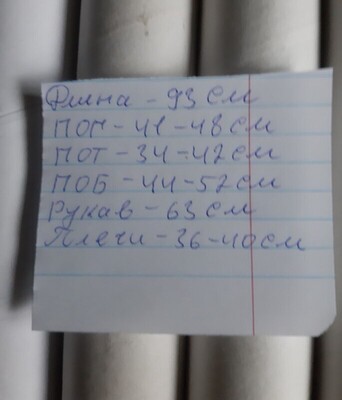 Длина - 93 см
ПОГ - 41 - 48 см
ПОТ - 34 - 42 см
ПОБ - 44 - 52 см
Рукав - 63 см
Плечи - 36 - 40 см